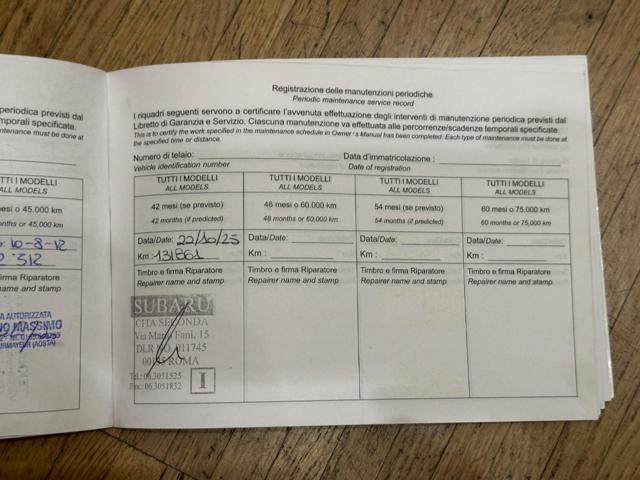 periodica previsti dal
temporali specificate.
ntenance must be done at
TUTTI I MODELLI
ALL MODELS
mesi o 45.000 km
months or 45,000 km
10-8-12
firma Riparatore
name and stamp
A AUTORIZZATA
MASSIMO
Registrazione delle manutenzioni periodiche
Periodic maintenance service record
I riquadri seguenti servono a certificare l'avvenuta effettuazione degli interventi di manutenzione periodica previsti dal
Libretto di Garanzia e Servizio. Ciascuna manutenzione va effettuata alle percorrenze/scadenze temporali specificate.
This is to certify the work specified in the maintenance schedule in Owner's Manual has been completed. Each type of maintenance must be done at
the specified time or distance.
Numero di telaio: Data d'immatricolazione :
Vehicle identification number Date of registration
TUTTI I MODELLI TUTTI I MODELLI TUTTI I MODELLI TUTTI I MODELLI
ALL MODELS ALL MODELS ALL MODELS ALL MODELS
42 mesi (se previsto) 48 mesi o 60.000 km 54 mesi (se previsto) 60 mesi o 75.000 km
42 months (if predicted) 48 months or 60,000 km 54 months (if predicted) 60 months or 75,000 km
Data/Date: 22/10/25 Data/Date: Data/Date: Data/Date:
Km : 131861 Km : Km : Km :
Timbro e firma Riparatore Timbro e firma Riparatore Timbro e firma Riparatore Timbro e firma Riparatore
Repairer name and stamp Repairer name and stamp Repairer name and stamp Repairer name and stamp
SUBARU
CITA SECONDA
Via Mario Fani, 15
DLR NO. 011745
00135 ROMA
Tel.: 06.3051525
Fax.: 06.3051832
I